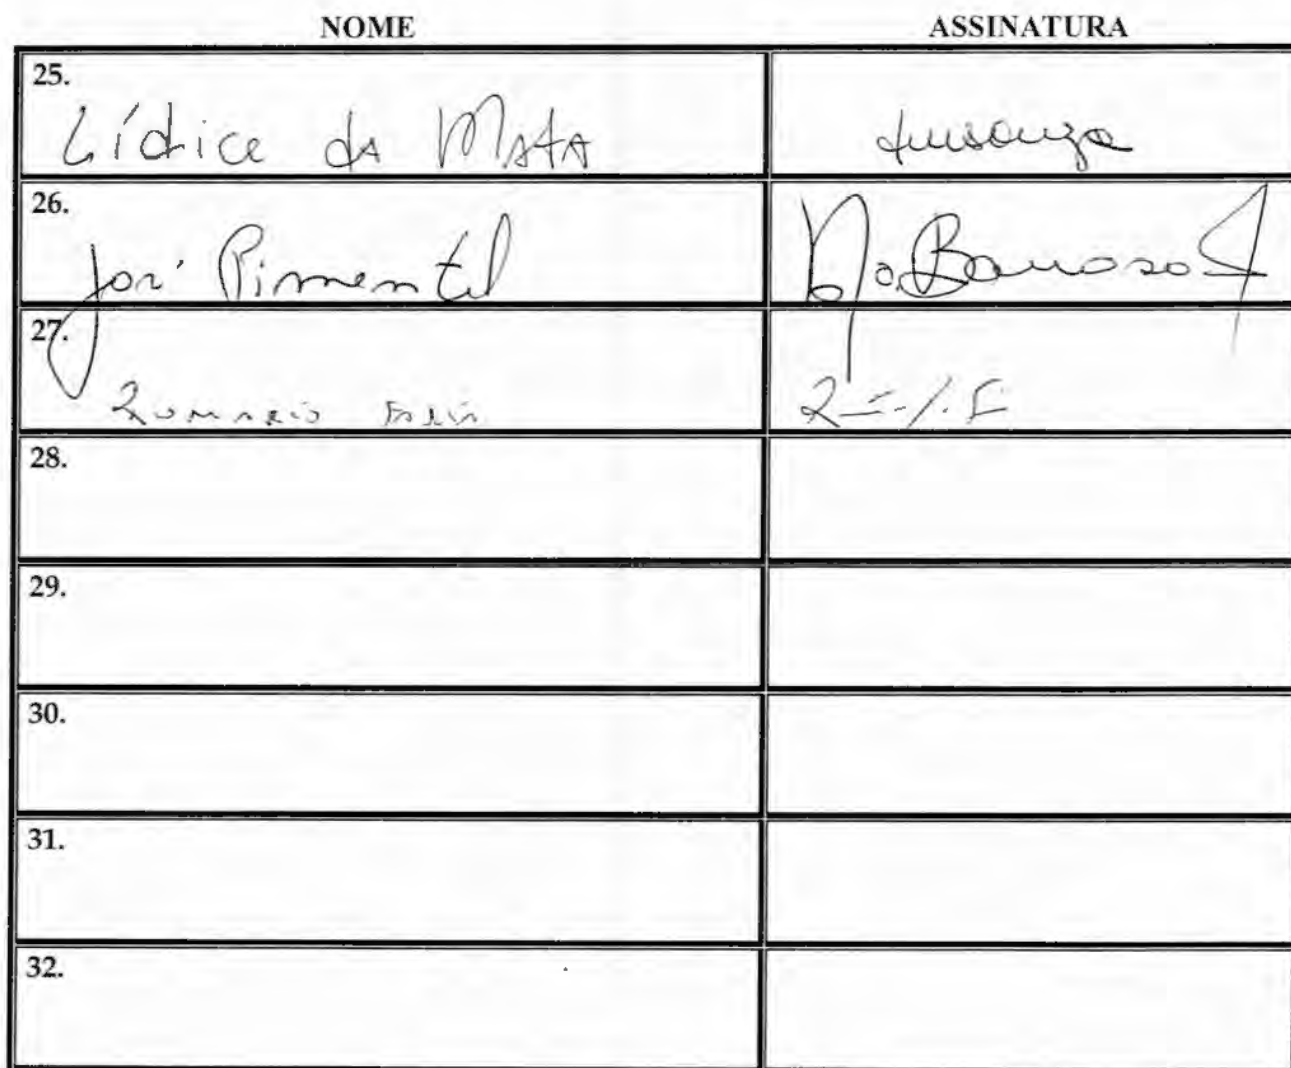 NOME ASSINATURA
25.
Lídice da Mata
26.
José Pimentel
27.
Romario Faria
28.
29.
30.
31.
32.